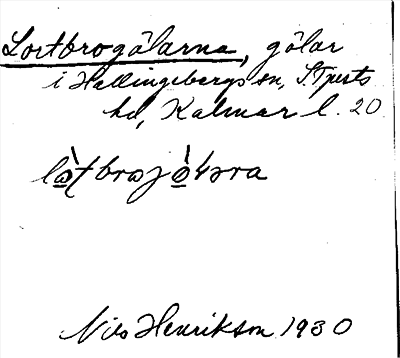 Lortbrogölarna, gölar
i Hallingebergs sn, S. Tjusts
hd, Kalmar l. 20
Nils Henrikson 1930